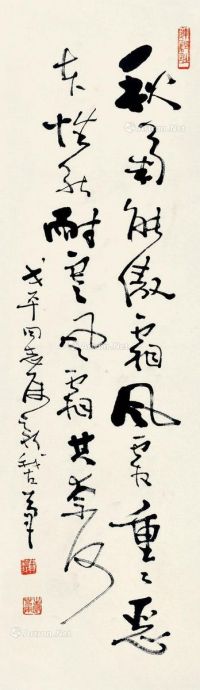 秋菊能傲霜风霜重〻恶
本性能耐寒风霜其奈何
戈平同志属